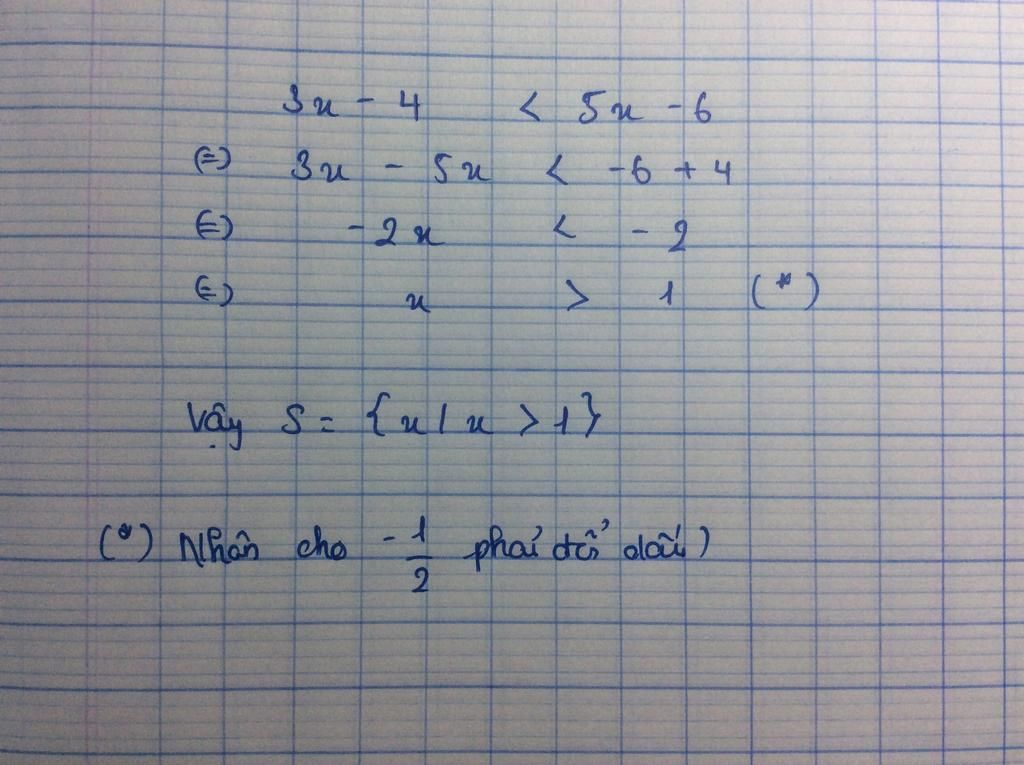 3x - 4 < 5x - 6
(=) 3x - 5x < -6 + 4
(=) -2x < -2
(=) x > 1 (*)
Vậy S = {x | x > 1}
(*) Nhân cho -1/2 phải đổi dấu)